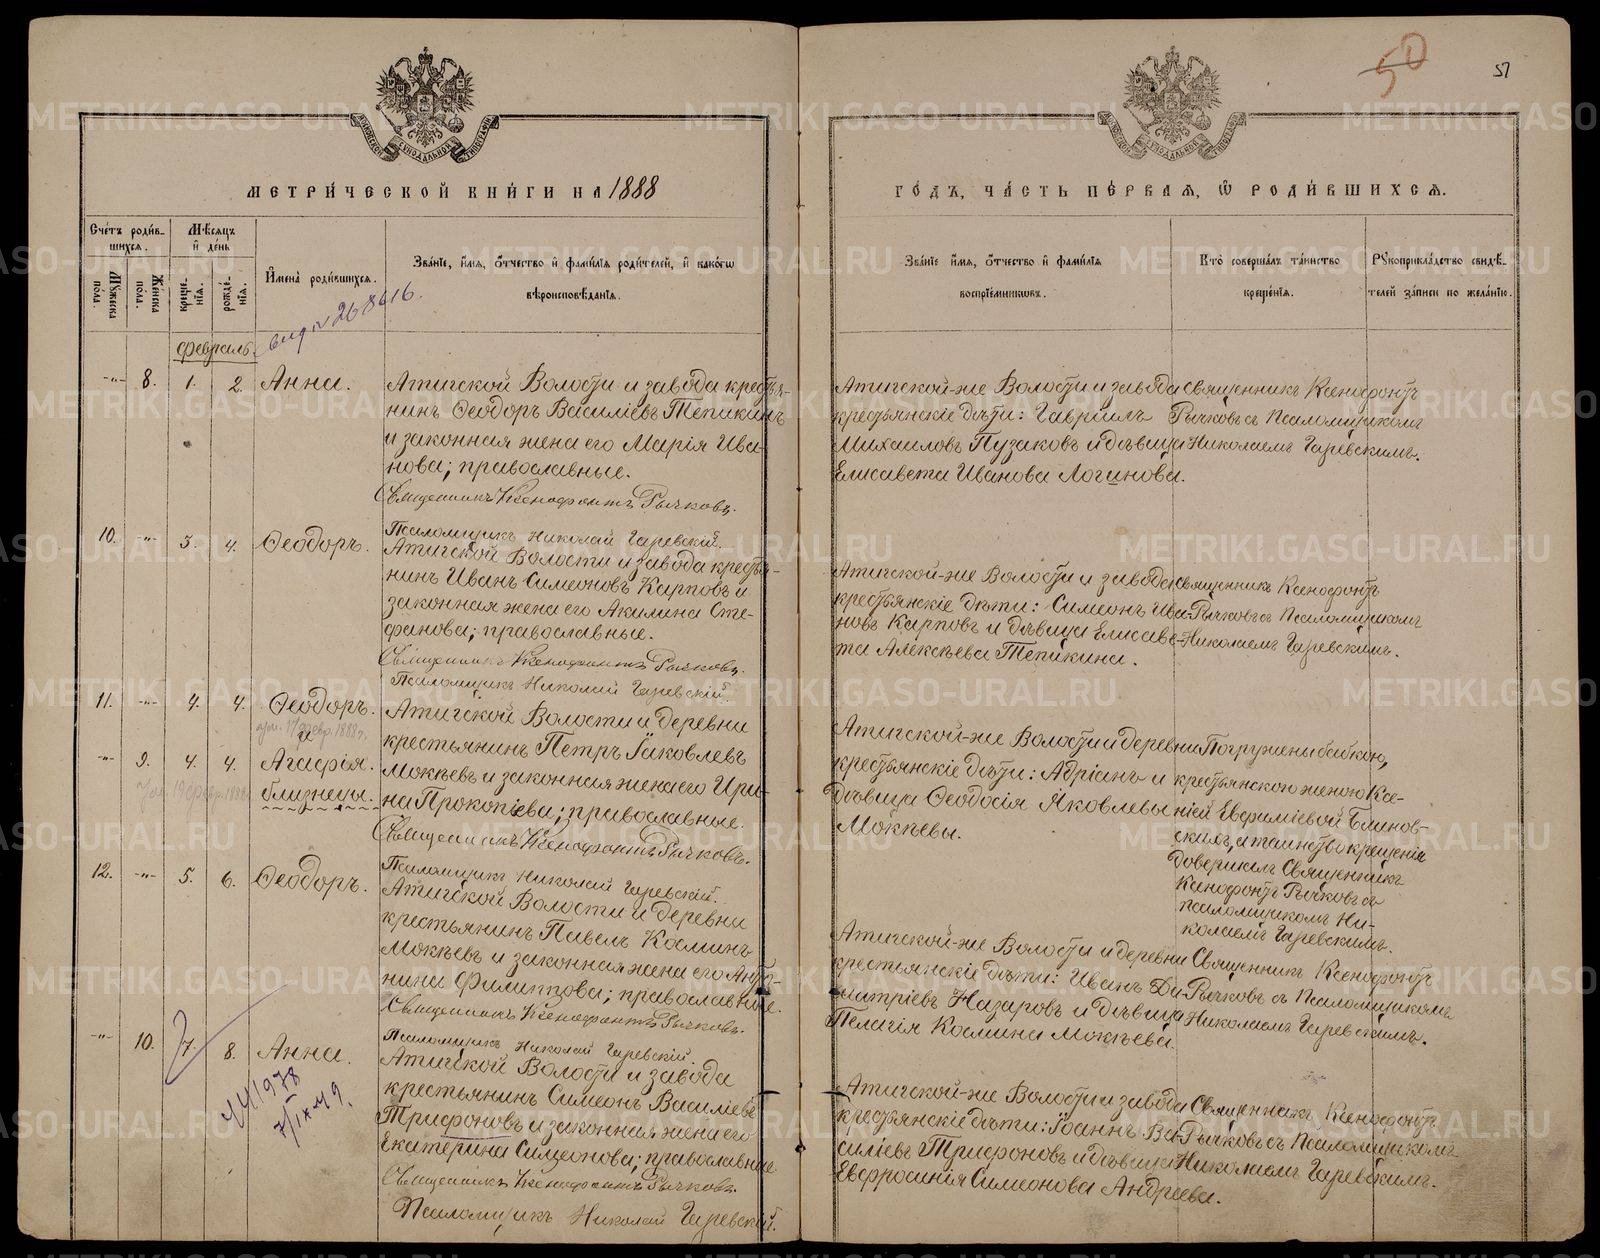 50
51
МЕТРИ́ЧЕСКОЙ КНИ́ГИ НА 1888
ГО́ДЪ, ЧА́СТЬ ПЕ́РВАЯ, Ѡ РОДИ́ВШИХСЯ.
Сче́тъ роди́в-
шихся.
Мꙋжеска
пола.
Женска
пола.
Мѣсяцъ
и де́нь
креще-
нїя.
рожде-
нїя.
Имена̀ роди́вшихся.
Зва́нїе, и́мя, о́тчество и фами́лїя роди́телей, и како́гѡ
вѣроисповѣ́данїя.
Зва́нїе и́мя, о́тчество и фами́лїя
воспрїе́мниковъ.
Кто̀ соверша́лъ та́инство
креще́нїя.
Рꙋкоприкла́дство свидѣ́-
телей за́писи по жела́нїю.
Февраль.
-"- 8. 1. 2. Анна.
Атигской Волости и завода кресть-
нинъ Ѳеодоръ Василіевъ Тепикинъ
и законная жена его Марія Ива-
нова; православные.
Священникъ Ксенофонтъ Рычковъ.
Псаломщикъ Николай Гаревскій.
Атигской-же Волости и завода
крестьянскіе дѣти: Гавріилъ
Михаиловъ Пузаковъ и дѣвица
Елисавета Иванова Логинова.
Священникъ Ксенофонтъ
Рычковъ съ Псаломщикомъ
Николаемъ Гаревскимъ.
10. -"- 3. 4. Ѳеодоръ.
Атигской Волости и завода кресть-
нинъ Иванъ Симеоновъ Карповъ и
законная жена его Акилина Сте-
фанова; православные.
Священникъ Ксенофонтъ Рычковъ.
Псаломщикъ Николай Гаревскій.
Атигской-же Волости и завода
крестьянскіе дѣти: Симеонъ Ива-
новъ Карповъ и дѣвица Елисаве-
та Алексѣева Тепикина.
Священникъ Ксенофонтъ
Рычковъ съ Псаломщикомъ
Николаемъ Гаревскимъ.
11. -"- 4. 4. Ѳеодоръ.
и
-"- 9. 4. 4. Агафія.
близнецы.
Атигской Волости и деревни
крестьянинъ Петръ Іаковлевъ
Мокѣевъ и законная жена его Ири-
на Прокопіева; православные.
Священникъ Ксенофонтъ Рычковъ.
Псаломщикъ Николай Гаревскій.
Атигской-же Волости и деревни
крестьянскіе дѣти: Адріанъ и
дѣвица Ѳеодосія Яковлевы
Мокѣевы.
Погружены бабкою,
крестьянскою женою Ксе-
ніей Евфиміевой Блинов-
скихъ, а таинство крещенія
довершилъ Священникъ
Ксенофонтъ Рычковъ съ
псаломщикомъ Ни-
колаемъ Гаревскимъ.
12. -"- 5. 6. Ѳеодоръ.
Атигской Волости и деревни
крестьянинъ Павелъ Косминъ
Мокѣевъ и законная жена его Анто-
нина Филиппова; православные.
Священникъ Ксенофонтъ Рычковъ.
Псаломщикъ Николай Гаревскій.
Атигской-же Волости и деревни
крестьянскіе дѣти: Иванъ Ди-
митріевъ Назаровъ и дѣвица
Пелагія Космина Мокѣева.
Священникъ Ксенофонтъ
Рычковъ съ Псаломщикомъ
Николаемъ Гаревскимъ.
-"- 10. 7. 8. Анна.
Атигской Волости и завода
крестьянинъ Симеонъ Василіевъ
Трифоновъ и законная жена его
Екатерина Симеонова; православные
Священникъ Ксенофонтъ Рычковъ.
Псаломщикъ Николай Гаревскій.
Атигской-же Волости и завода
крестьянскіе дѣти: Іоаннъ Ва-
силіевъ Трифоновъ и дѣвица
Евфросинія Симеонова Андреева.
Священникъ Ксенофонтъ
Рычковъ съ Псаломщикомъ
Николаемъ Гаревскимъ.
METRIKI.GASO-URAL.RU